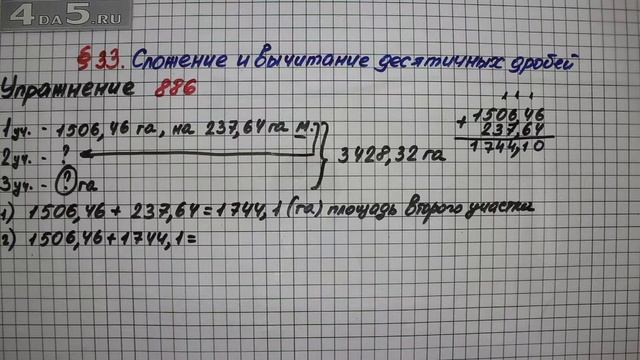 4DA5.RU
§ 33. Сложение и вычитание десятичных дробей
Упражнение 886
1 уч. - 1506,46 га, на 237,64 га м.
2 уч. - ?
3 уч. - ? га
3428,32 га
1506,46
+ 237,64
1744,10
1) 1506,46 + 237,64 = 1744,1 (га) площадь второго участка
2) 1506,46 + 1744,1 =